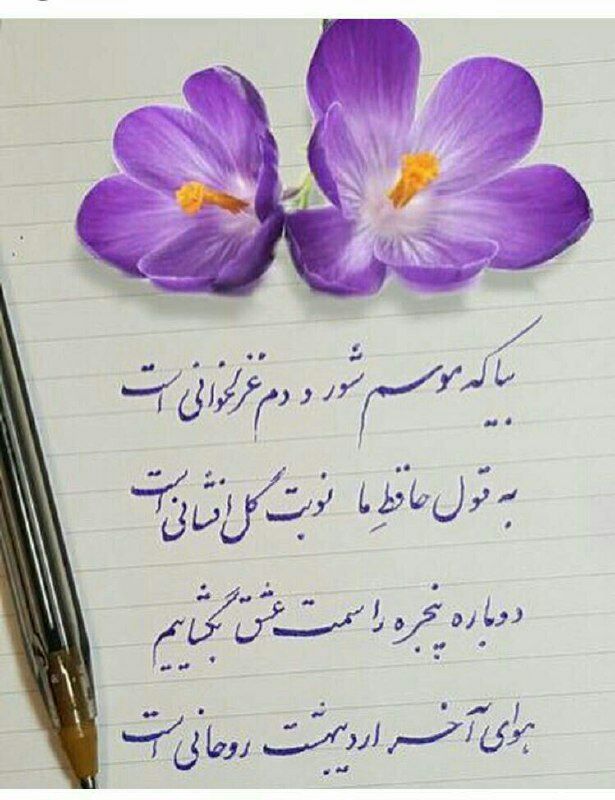 بیا که موسم شور و دم غزلخوانی است
به قول حافظِ ما نوبت گل افشانی است
دوباره پنجره را سمت عشق بگشاییم
هوای آخر اردیبهشت روحانی است